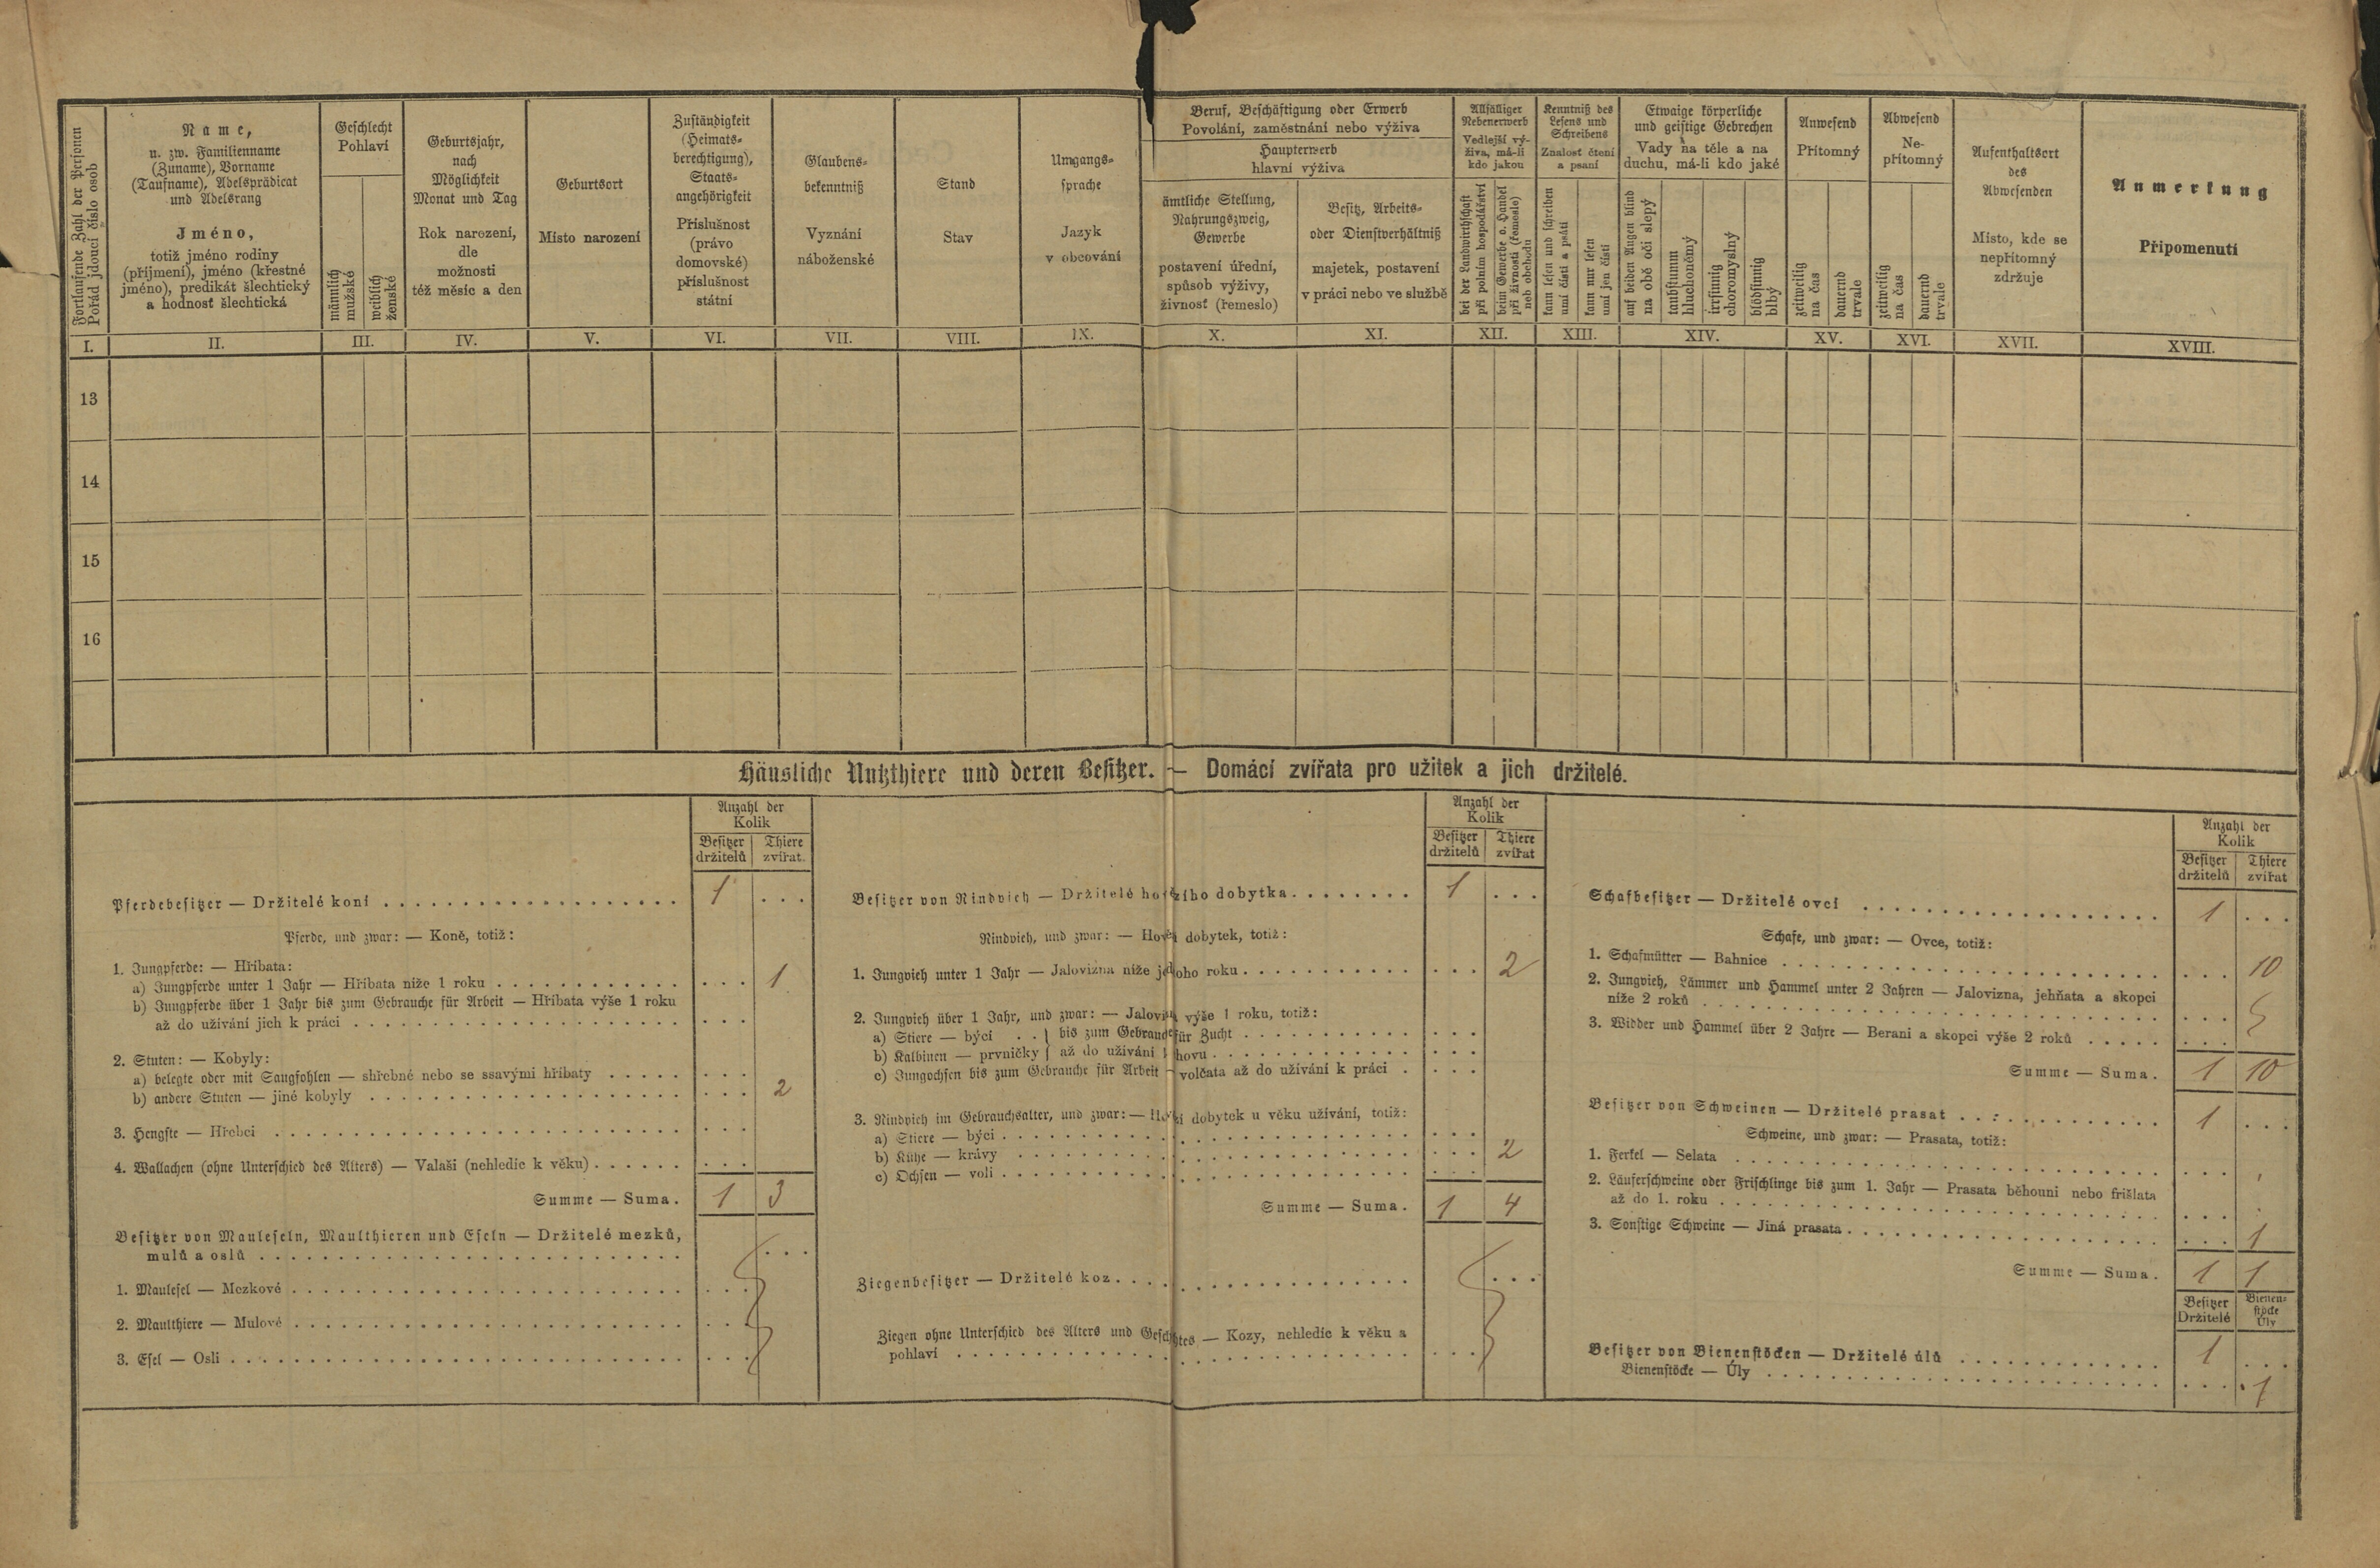 Fortlaufende Zahl der Personen
Pořád jdoucí číslo osob
Name,
u. zw. Familienname
(Zuname), Vorname
(Taufname), Adelsprädicat
und Adelsrang
Jméno,
totiž jméno rodiny
(příjmení), jméno (křestné
jméno), predikát šlechtický
a hodnosť šlechtická
Geschlecht
Pohlaví
männlich
mužské
weiblich
ženské
Geburtsjahr,
nach
Möglichkeit
Monat und Tag
Rok narození,
dle
možnosti
též měsíc a den
Geburtsort
Místo narození
Zuständigkeit
(Heimats-
berechtigung),
Staats-
angehörigkeit
Příslušnost
(právo
domovské)
příslušnost
státní
Glaubens-
bekenntniß
Vyznání
náboženské
Stand
Stav
Umgangs-
sprache
Jazyk
v obcování
Beruf, Beschäftigung oder Erwerb
Povolání, zaměstnání nebo výživa
Haupterwerb
hlavní výživa
ämtliche Stellung,
Nahrungszweig,
Gewerbe
postavení úřední,
spůsob výživy,
živnosť (řemeslo)
Besitz, Arbeits-
oder Dienstverhältniß
majetek, postavení
v práci nebo ve službě
Allfälliger
Nebenerwerb
Vedlejší vý-
živa, má-li
kdo jakou
bei der Landwirthschaft
při polním hospodářství
beim Gewerbe o. Handel
při živnosti (řemeslo)
neb obchodu
Kenntniß des
Lesens und
Schreibens
Znalosť čtení
a psaní
kann lesen und schreiben
umí čísti a psáti
kann nur lesen
umí jen čísti
Etwaige körperliche
und geistige Gebrechen
Vady na těle a na
duchu, má-li kdo jaké
auf beiden Augen blind
na obě oči slepý
taubstumm
hluchoněmý
irrsinnig
choromyslný
blödsinnig
blbý
Anwesend
Přítomný
zeitweilig
na čas
dauernd
trvale
Abwesend
Ne-
přítomný
zeitweilig
na čas
dauernd
trvale
Aufenthaltsort
des
Abwesenden
Místo, kde se
nepřítomný
zdržuje
Anmerkung
Připomenutí
I. II. III. IV. V. VI. VII. VIII. IX. X. XI. XII. XIII. XIV. XV. XVI. XVII. XVIII.
13
14
15
16
Häusliche Nutzthiere und deren Besitzer. — Domácí zvířata pro užitek a jich držitelé.
Anzahl der
Kolik
Besitzer Thiere
držitelů zvířat
Pferdebesitzer — Držitelé koní 1
Pferde, und zwar: — Koně, totiž:
1. Jungpferde: — Hříbata:
a) Jungpferde unter 1 Jahr — Hříbata níže 1 roku 1
b) Jungpferde über 1 Jahr bis zum Gebrauche für Arbeit — Hříbata výše 1 roku
až do užívání jich k práci
2. Stuten: — Kobyly:
a) belegte oder mit Saugfohlen — shřebné nebo se ssavými hříbaty
b) andere Stuten — jiné kobyly 2
3. Hengste — Hřebci
4. Wallachen (ohne Unterschied des Alters) — Valaši (nehledíc k věku)
Summe — Suma. 1 3
Besitzer von Mauleseln, Maulthieren und Eseln — Držitelé mezků,
mulů a oslů
1. Maulesel — Mezkové
2. Maulthiere — Mulové
3. Esel — Osli
Anzahl der
Kolik
Besitzer Thiere
držitelů zvířat
Besitzer von Rindvieh — Držitelé hovězího dobytka 1
Rindvieh, und zwar: — Hovězí dobytek, totiž:
1. Jungvieh unter 1 Jahr — Jalovizna níže jednoho roku 2
2. Jungvieh über 1 Jahr, und zwar: — Jalovizna výše 1 roku, totiž:
a) Stiere — býci . . } bis zum Gebrauche für Zucht
b) Kalbinen — prvničky } až do užívání k chovu
c) Jungochsen bis zum Gebrauche für Arbeit — volčata až do užívání k práci
3. Rindvieh im Gebrauchsalter, und zwar: — Hovězí dobytek u věku užívání, totiž:
a) Stiere — býci
b) Kühe — krávy 2
c) Ochsen — voli
Summe — Suma. 1 4
Ziegenbesitzer — Držitelé koz
Ziegen ohne Unterschied des Alters und Geschlechtes — Kozy, nehledíc k věku a
pohlaví
Anzahl der
Kolik
Besitzer Thiere
držitelů zvířat
Schafbesitzer — Držitelé ovcí 1
Schafe, und zwar: — Ovce, totiž:
1. Schafmütter — Bahnice 10
2. Jungvieh, Lämmer und Hammel unter 2 Jahren — Jalovizna, jehňata a skopci
níže 2 roků
3. Widder und Hammel über 2 Jahre — Berani a skopci výše 2 roků
Summe — Suma. 1 10
Besitzer von Schweinen — Držitelé prasat 1
Schweine, und zwar: — Prasata, totiž:
1. Ferkel — Selata
2. Läuferschweine oder Frischlinge bis zum 1. Jahr — Prasata běhouni nebo frišlata
až do 1. roku
3. Sonstige Schweine — Jiná prasata 1
Summe — Suma. 1 1
Besitzer Bienen-
Držitelé stöcke
Úly
Besitzer von Bienenstöcken — Držitelé úlů 1
Bienenstöcke — Úly 1